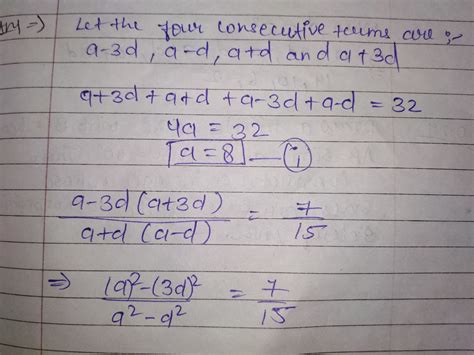 Let the four consecutive terms are :-
a-3d, a-d, a+d and a+3d
a+3d+a+d+a-3d+a-d = 32
4a = 32
a = 8 — (i)
a-3d (a+3d) / a+d (a-d) = 7/15
⇒ (a)²-(3d)² / a²-d² = 7/15